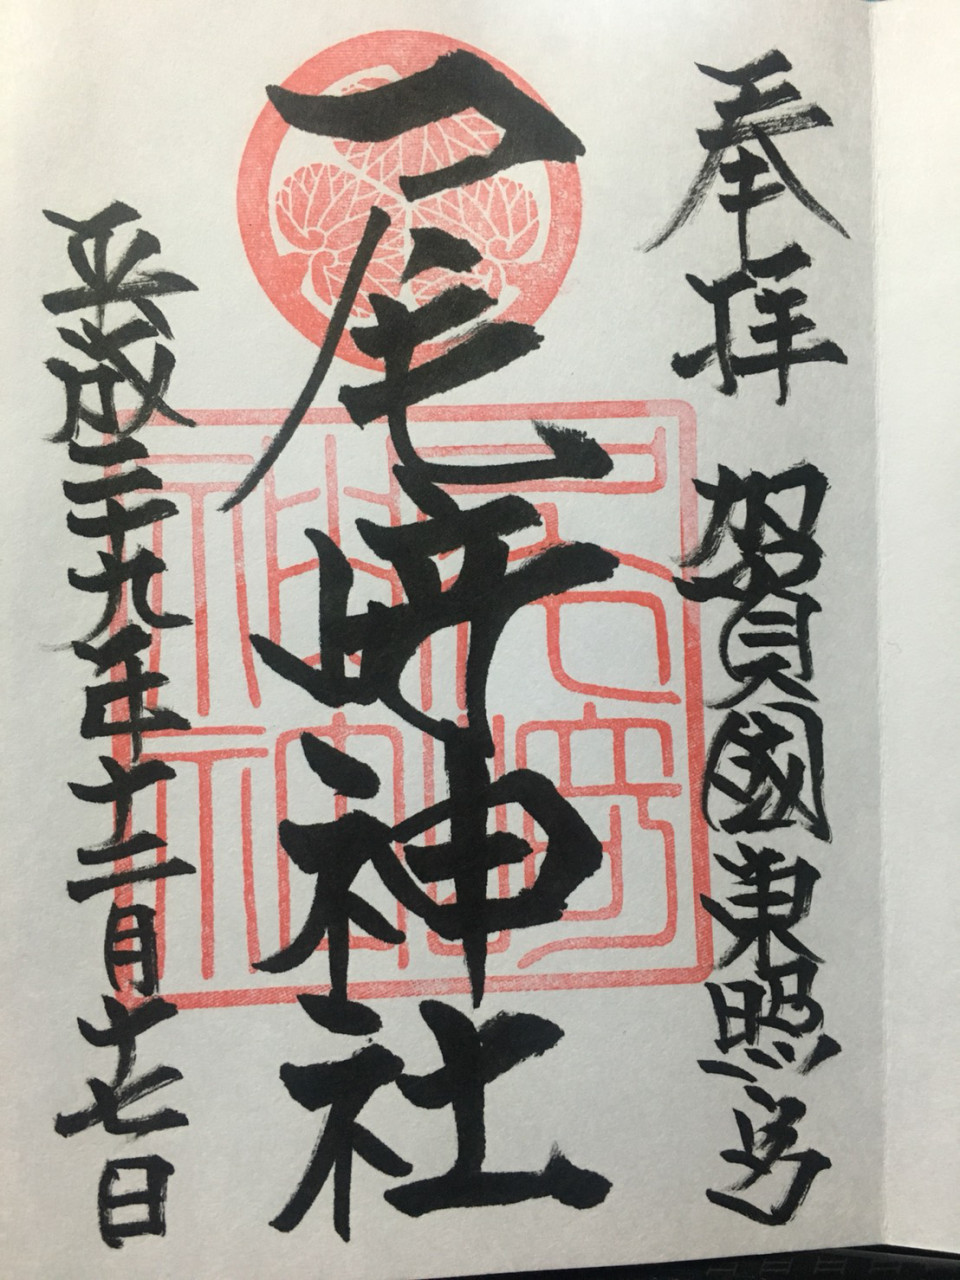 奉拝 加賀國東照宮
尾﨑神社
平成二十九年十二月十七日